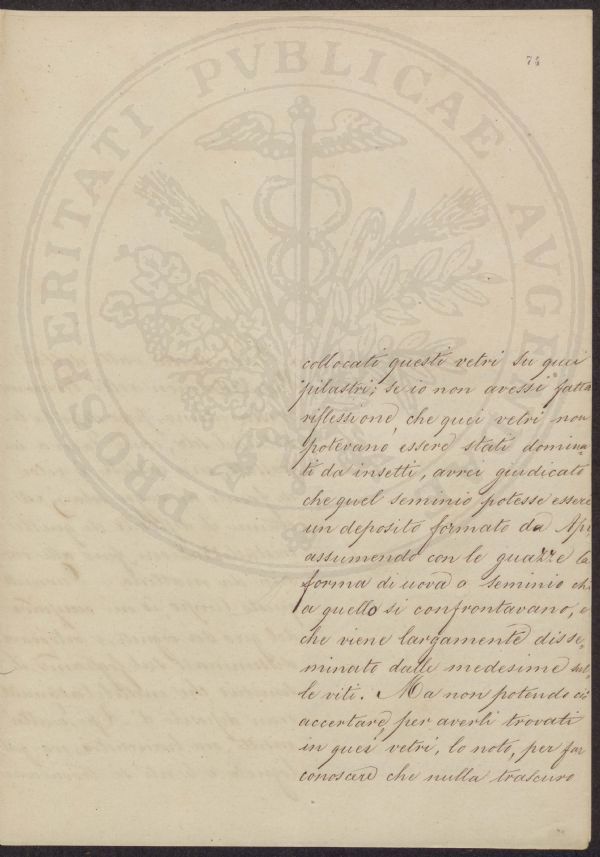 74
PROSPERITATI PVBLICAE AVGE
collocati questi vetri su quei
pilastri; se io non avessi fatta
riflessione, che quei vetri non
potevano essere stati domina=
ti da insetti, avrei giudicato
che quel seminio potesse essere
un deposito formato da Api
assumendo con le guazze la
forma di uova o seminio ch
a quello si confrontavano, e
che viene largamente disse=
minato dalle medesime sul=
le viti. Ma non potendo ciò
accertare, per averli trovati
in quei vetri, lo noto, per far
conoscere che nulla trascuro